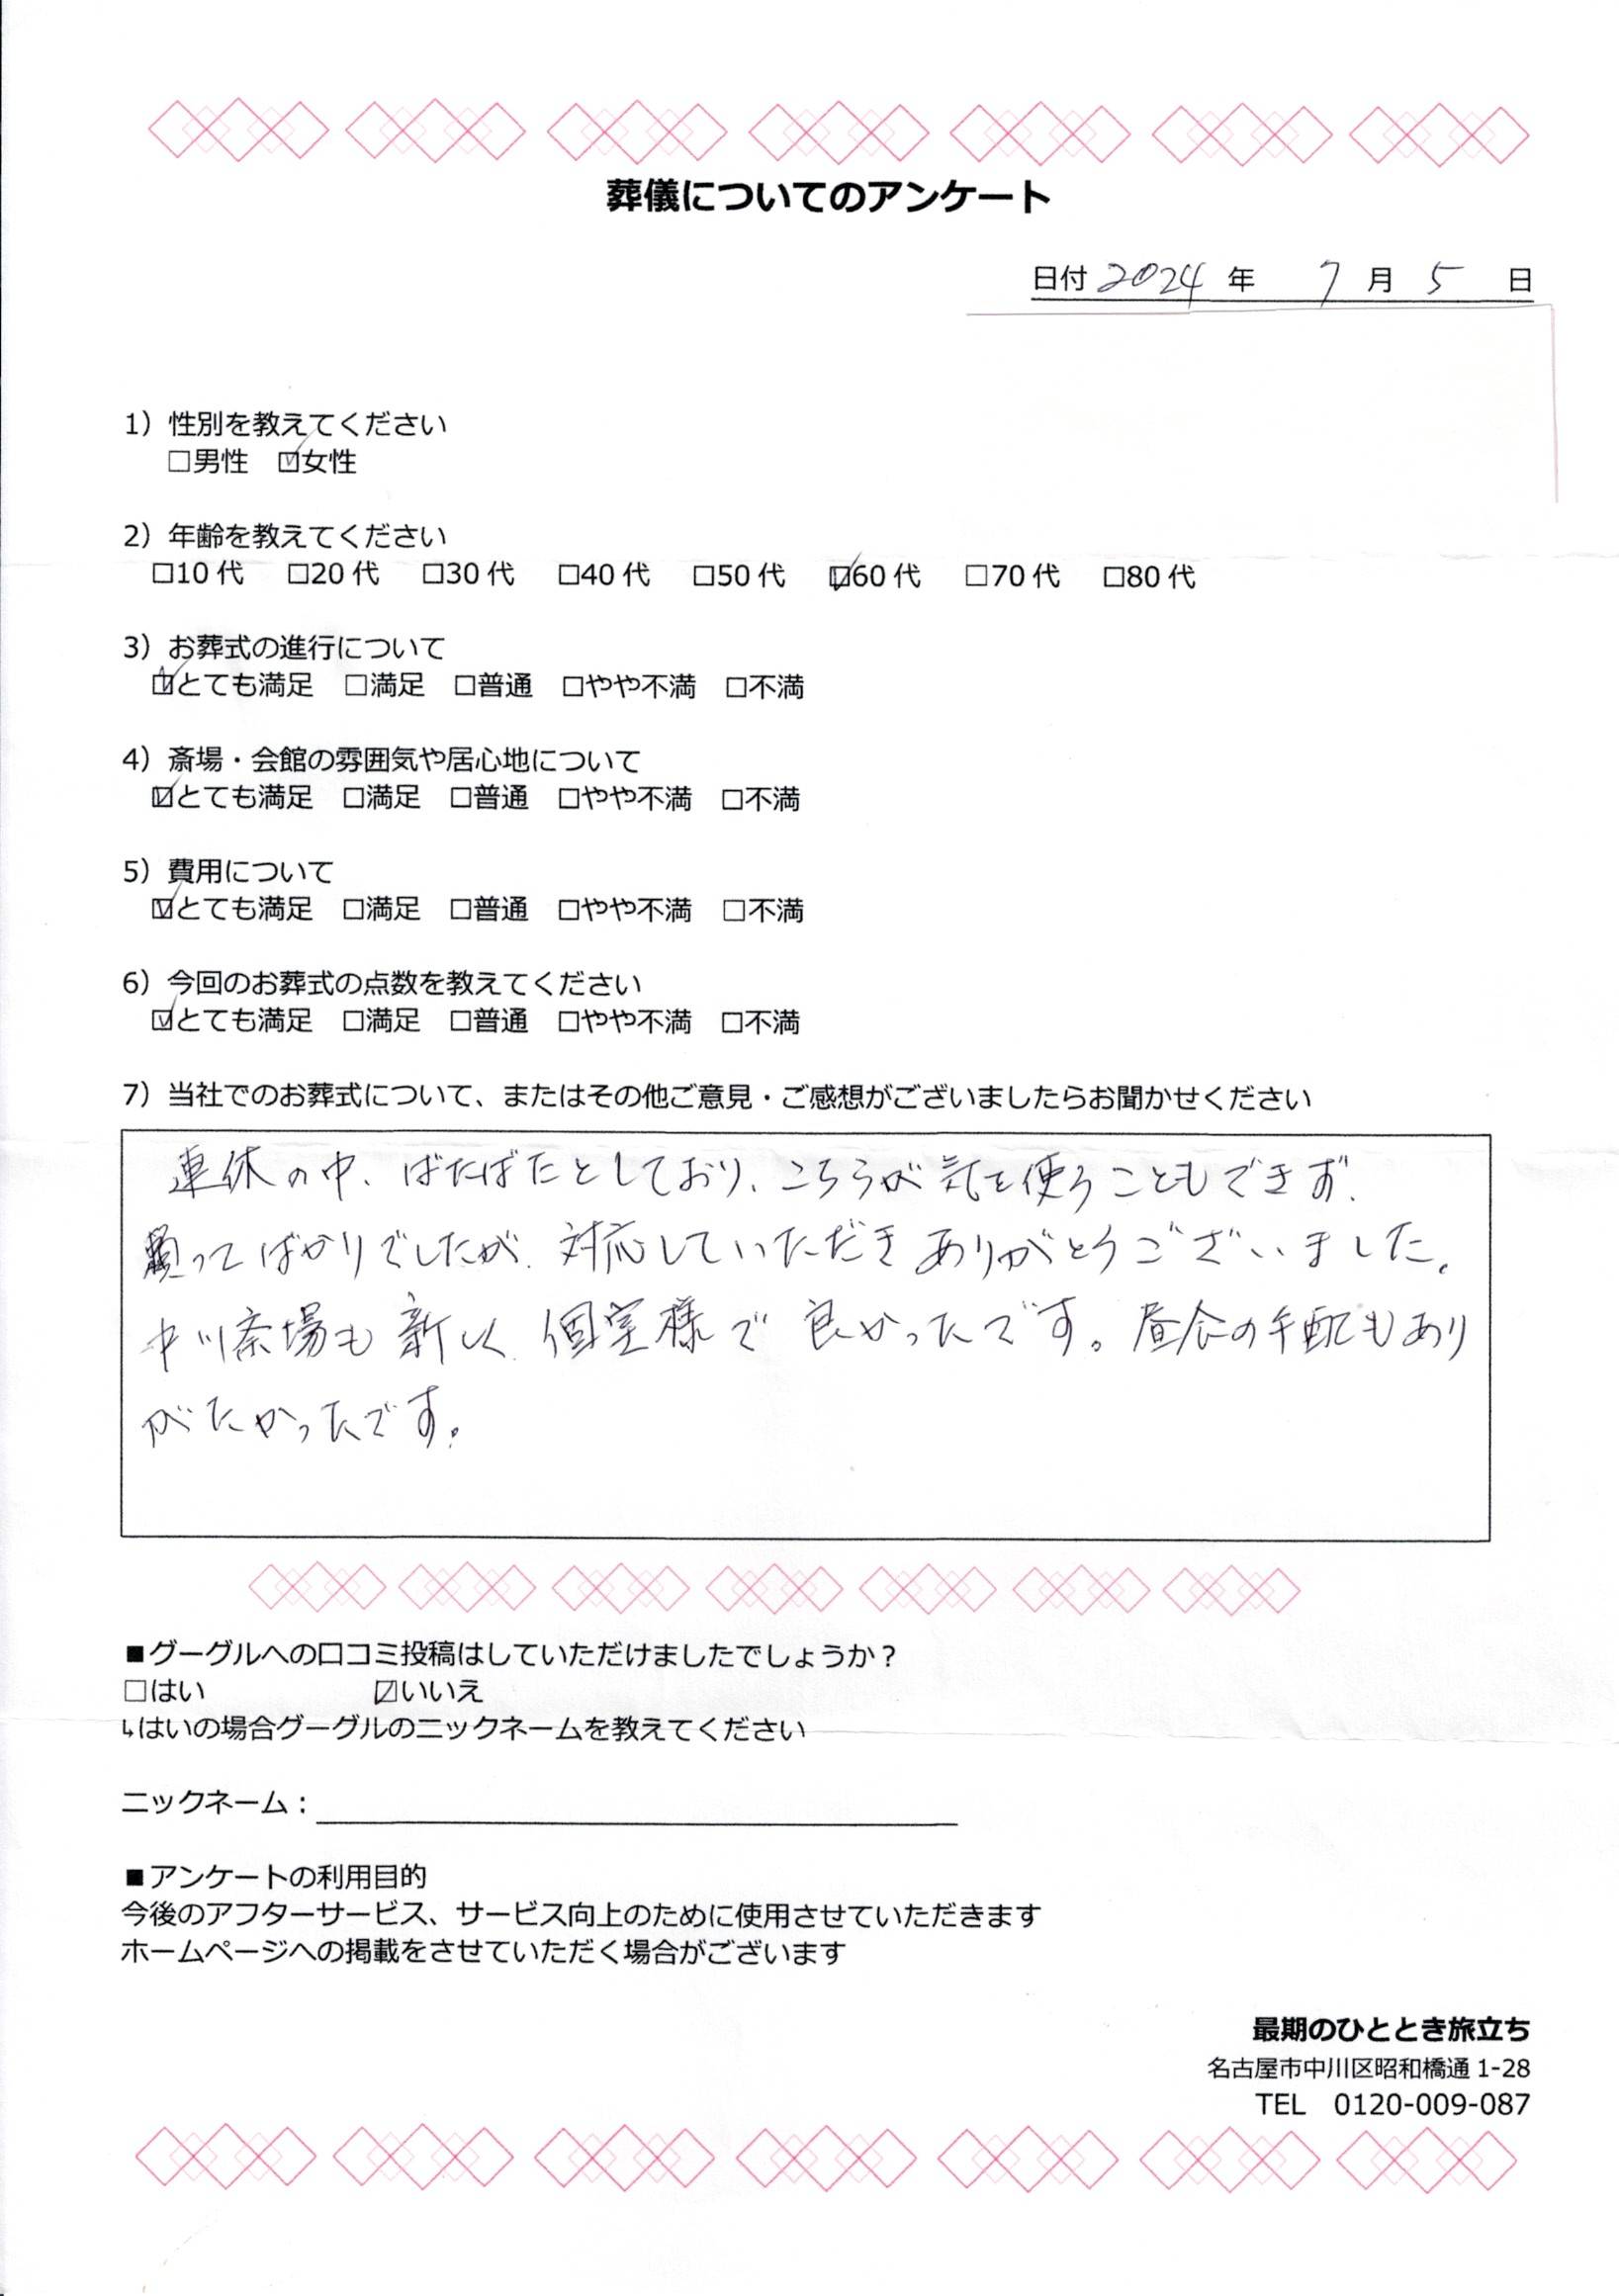 葬儀についてのアンケート
日付 2024 年 7 月 5 日
1）性別を教えてください
□男性 ☑女性
2）年齢を教えてください
□10代 □20代 □30代 □40代 □50代 ☑60代 □70代 □80代
3）お葬式の進行について
☑とても満足 □満足 □普通 □やや不満 □不満
4）斎場・会館の雰囲気や居心地について
☑とても満足 □満足 □普通 □やや不満 □不満
5）費用について
☑とても満足 □満足 □普通 □やや不満 □不満
6）今回のお葬式の点数を教えてください
☑とても満足 □満足 □普通 □やや不満 □不満
7）当社でのお葬式について、またはその他ご意見・ご感想がございましたらお聞かせください
連休の中、ばたばたとしており、こちらが気を使うこともできず、
頼ってばかりでしたが、対応していただきありがとうございました。
中川斎場も新しく、個室様で良かったです。昼食の手配もあり
がたかったです。
■グーグルへの口コミ投稿はしていただけましたでしょうか？
□はい ☑いいえ
↳はいの場合グーグルのニックネームを教えてください
ニックネーム：
■アンケートの利用目的
今後のアフターサービス、サービス向上のために使用させていただきます
ホームページへの掲載をさせていただく場合がございます
最期のひととき旅立ち
名古屋市中川区昭和橋通1-28
TEL 0120-009-087